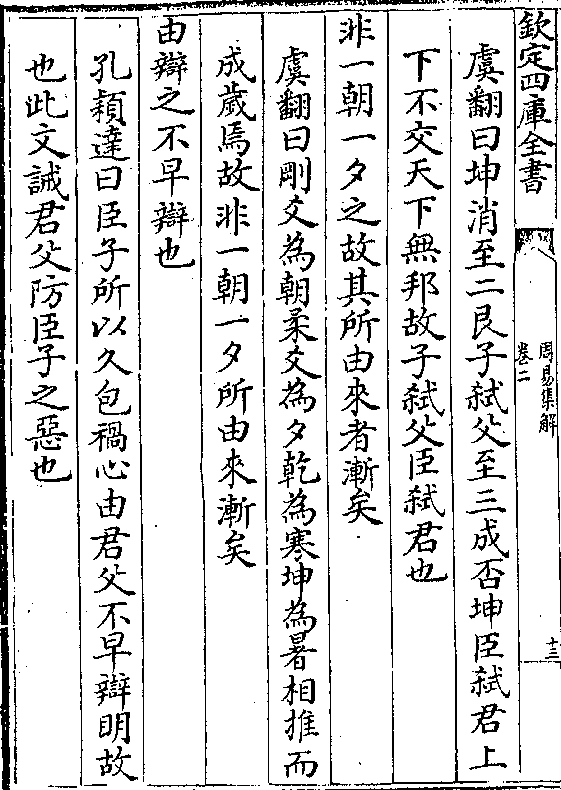 欽定四庫全書
周易集解
卷二
十三
虞翻曰坤消至二艮子弑父至三成否坤臣弑君上
下不交天下無邦故子弑父臣弑君也
非一朝一夕之故其所由來者漸矣
虞翻曰剛爻為朝柔爻為夕乾為寒坤為暑相推而
成歲焉故非一朝一夕所由來漸矣
由辯之不早辯也
孔穎達曰臣子所以久包禍心由君父不早辯明故
也此文誡君父防臣子之惡也